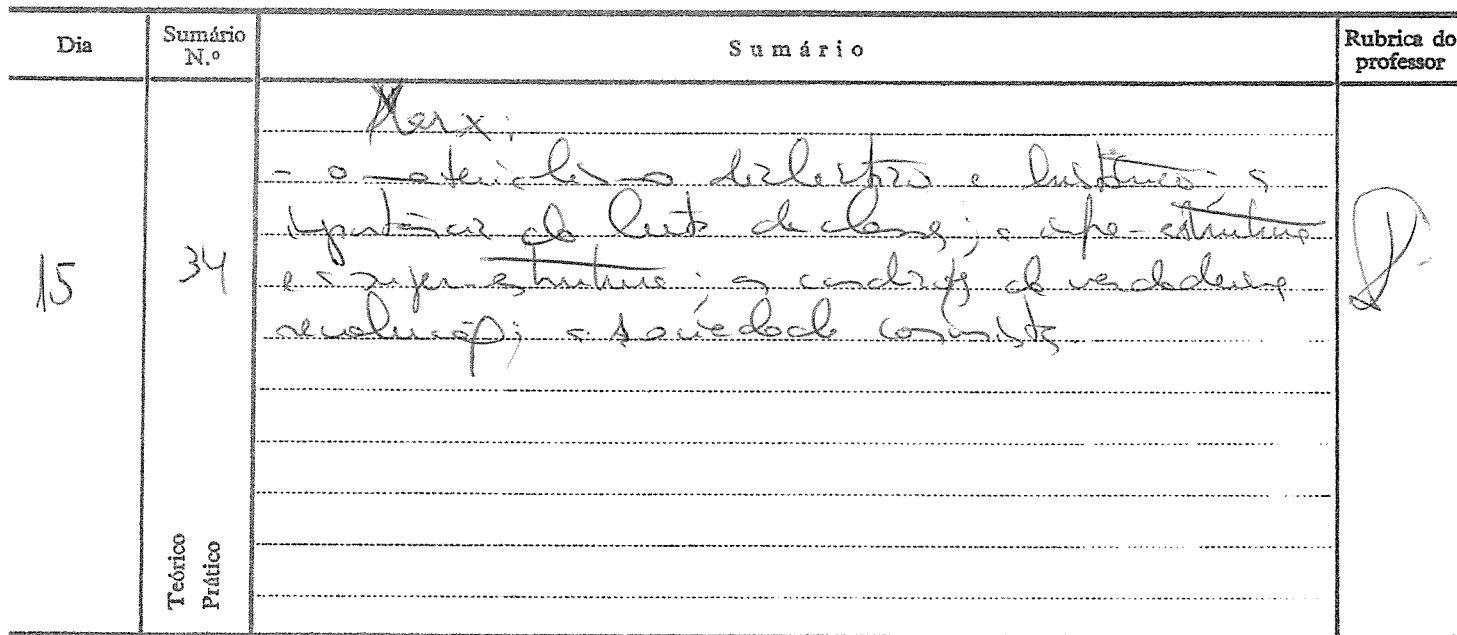 Dia
Sumário N.º
Sumário
Rubrica do professor
15
34
Marx:
- o materialismo dialéctico e histórico; a
importância da luta de classes; a infra-estrutura
e a super-estrutura; as condições da verdadeira
revolução; a sociedade comunista
Teórico
Prático